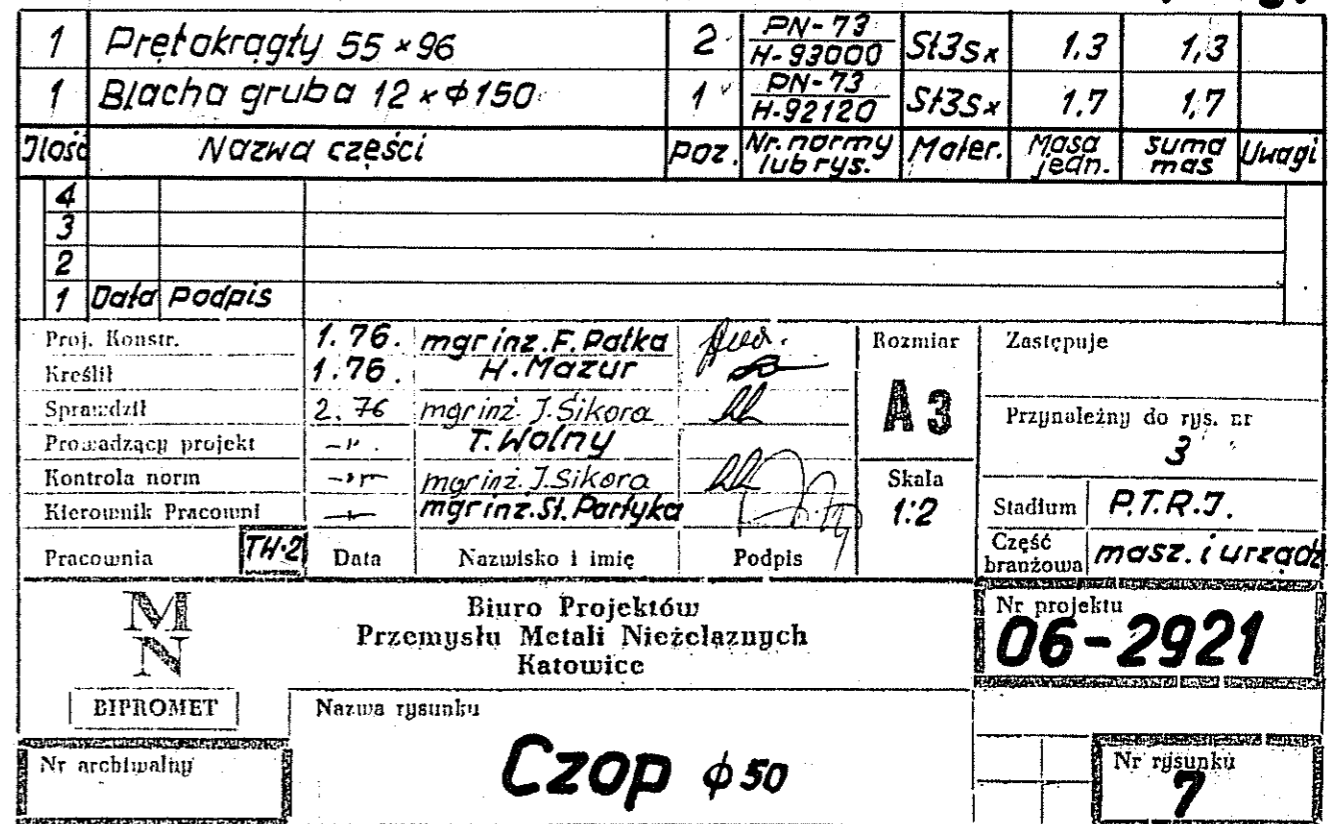 1 Pręt okrągły 55×96 2 PN-73 H-93000 St3Sx 1.3 1,3
1 Blacha gruba 12×ϕ150 1 PN-73 H-92120 St3Sx 1.7 1,7
Ilość Nazwa części poz. Nr. normy lub rys. Mater. Masa jedn. suma mas Uwagi
4
3
2
1 Data Podpis
Proj. Konstr. 1.76. mgr inz. F. Pałka
Kreślił 1.76. H. Mazur
Sprawdził 2.76 mgr inż. J. Sikora
Prowadzący projekt -"- T. Wolny
Kontrola norm -"- mgr inż. J. Sikora
Kierownik Pracowni -"- mgr inz. St. Partyka
Pracownia TH-2 Data Nazwisko i imię Podpis
Rozmiar
A3
Skala
1:2
Zastępuje
Przynależny do rys. nr
3
Stadium P.T.R.J.
Część branżowa masz. i urządz
MN
BIPROMET
Biuro Projektów
Przemysłu Metali Nieżelaznych
Katowice
Nr projektu
06-2921
Nazwa rysunku
Czop ϕ50
Nr archiwalny
Nr rysunku
7